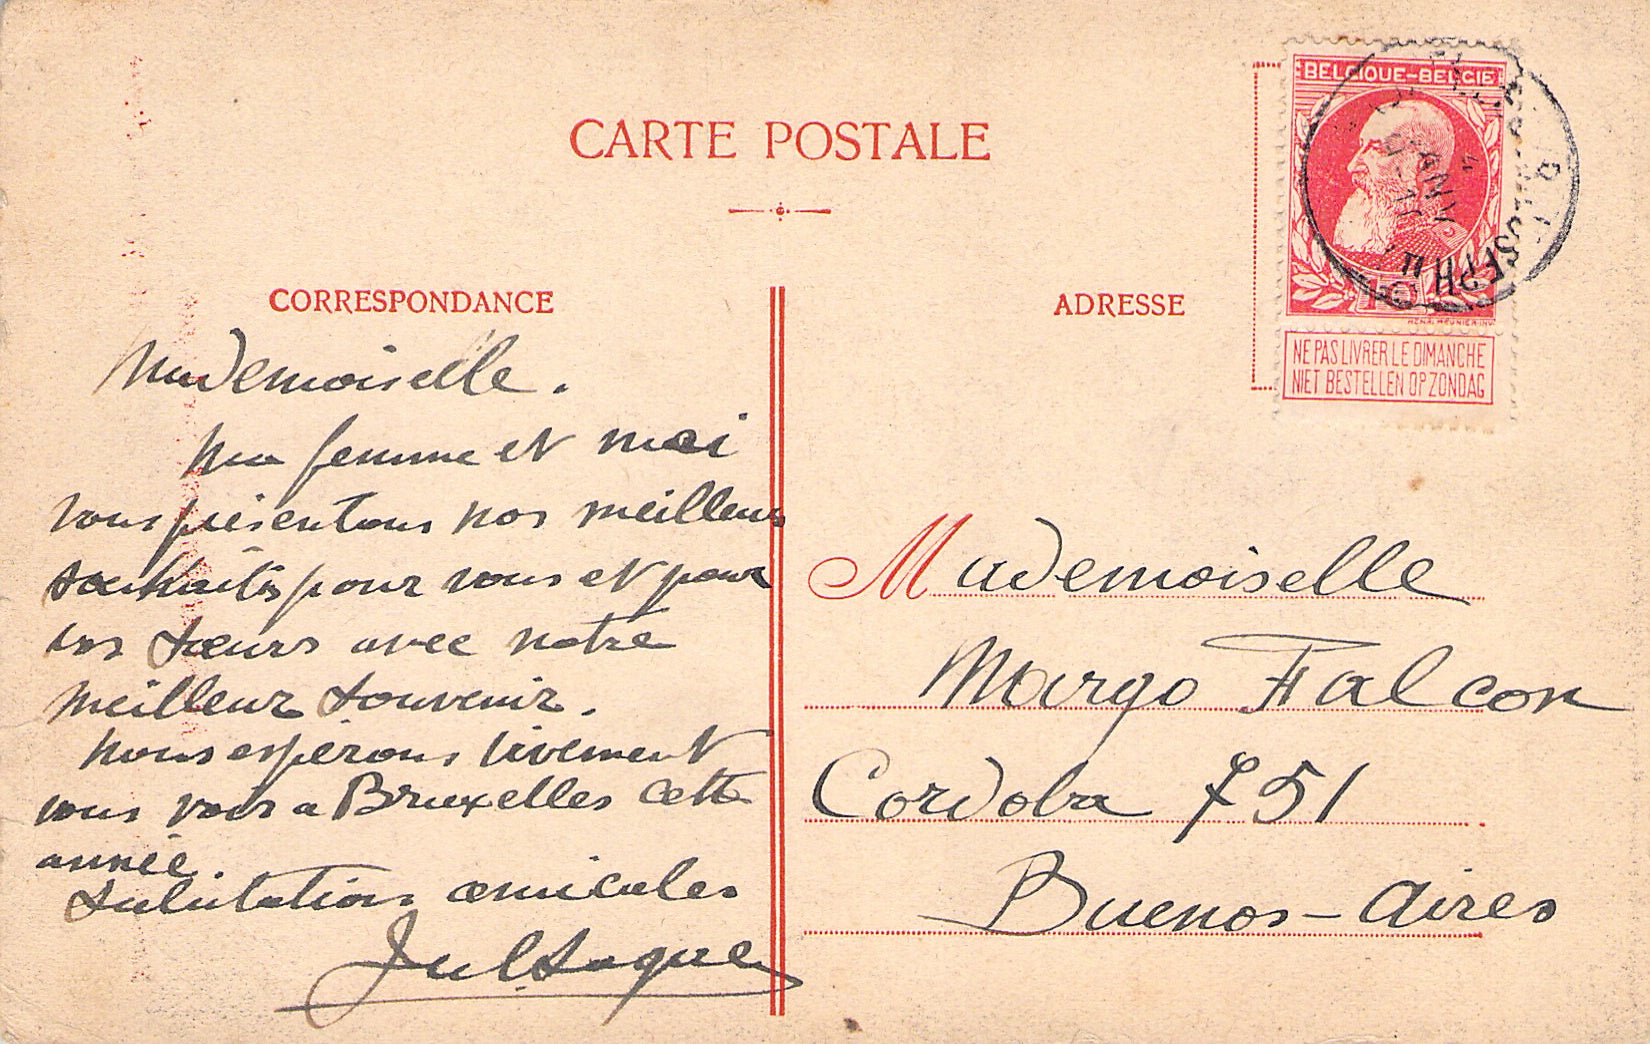 CARTE POSTALE
CORRESPONDANCE
Mademoiselle.
Ma femme et moi
vous présentons nos meilleurs
souhaits pour vous et pour
vos sœurs avec notre
meilleur souvenir.
Nous espérons vivement
vous voir a Bruxelles cette
année.
Salutations amicales
ADRESSE
BELGIQUE-BELGIË
10
HENRI MEUNIER INV.
NE PAS LIVRER LE DIMANCHE
NIET BESTELLEN OP ZONDAG
JANV
Mademoiselle
Margo Falcon
Cordoba 751
Buenos-Aires